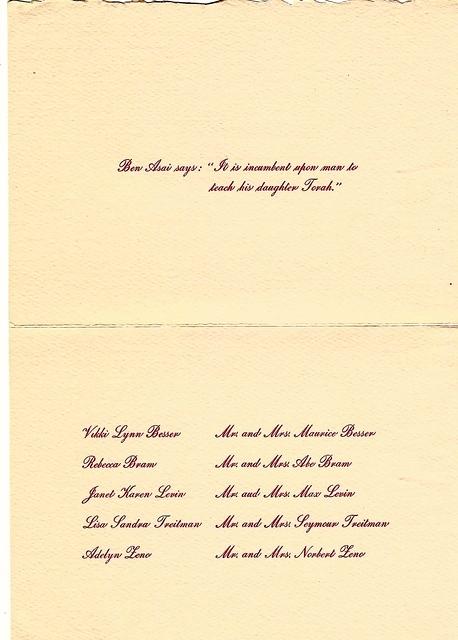 Ben Asai says: "It is incumbent upon man to
teach his daughter Torah."
Vikki Lynn Besser Mr. and Mrs. Maurice Besser
Rebecca Bram Mr. and Mrs. Abe Bram
Janet Karen Levin Mr. aud Mrs. Max Levin
Lisa Sandra Treitman Mr. and Mrs. Seymour Treitman
Adelyn Zeno Mr. and Mrs. Norbert Zeno